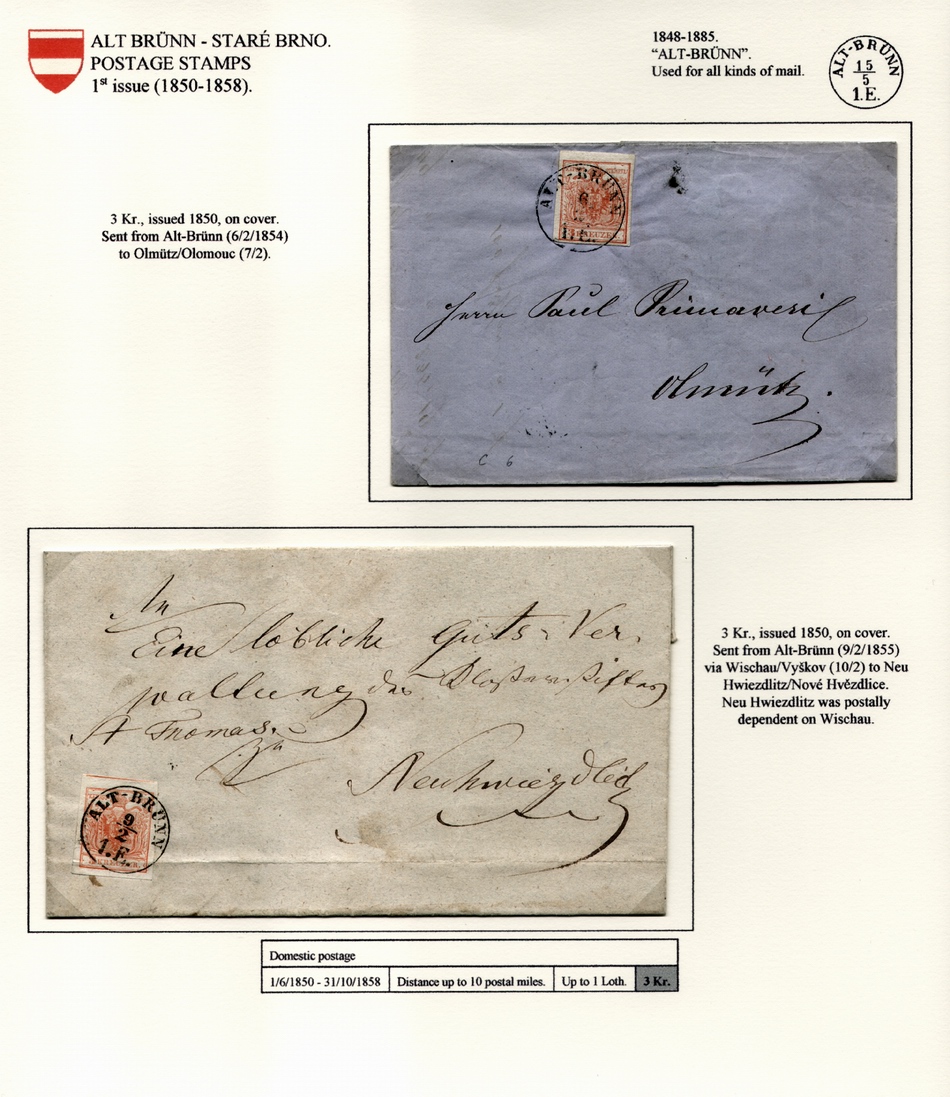 ALT BRÜNN - STARÉ BRNO.
POSTAGE STAMPS
1st issue (1850-1858).
1848-1885.
“ALT-BRÜNN”.
Used for all kinds of mail.
ALT-BRÜNN
15
5
1.E.
3 Kr., issued 1850, on cover.
Sent from Alt-Brünn (6/2/1854)
to Olmütz/Olomouc (7/2).
ALT-BRÜNN
6
1.E.
KREUZER.
Herrn Paul Primavesi
Olmütz.
C 6
An
Eine löbliche Guts-Ver
waltung des Klosterstiftes
St Thomas.
zu
Neuhwiezdlitz
ALT-BRÜNN
9
2
1.E.
KREUZER.
3 Kr., issued 1850, on cover.
Sent from Alt-Brünn (9/2/1855)
via Wischau/Vyškov (10/2) to Neu
Hwiezdlitz/Nové Hvězdlice.
Neu Hwiezdlitz was postally
dependent on Wischau.
Domestic postage
1/6/1850 - 31/10/1858 Distance up to 10 postal miles. Up to 1 Loth. 3 Kr.